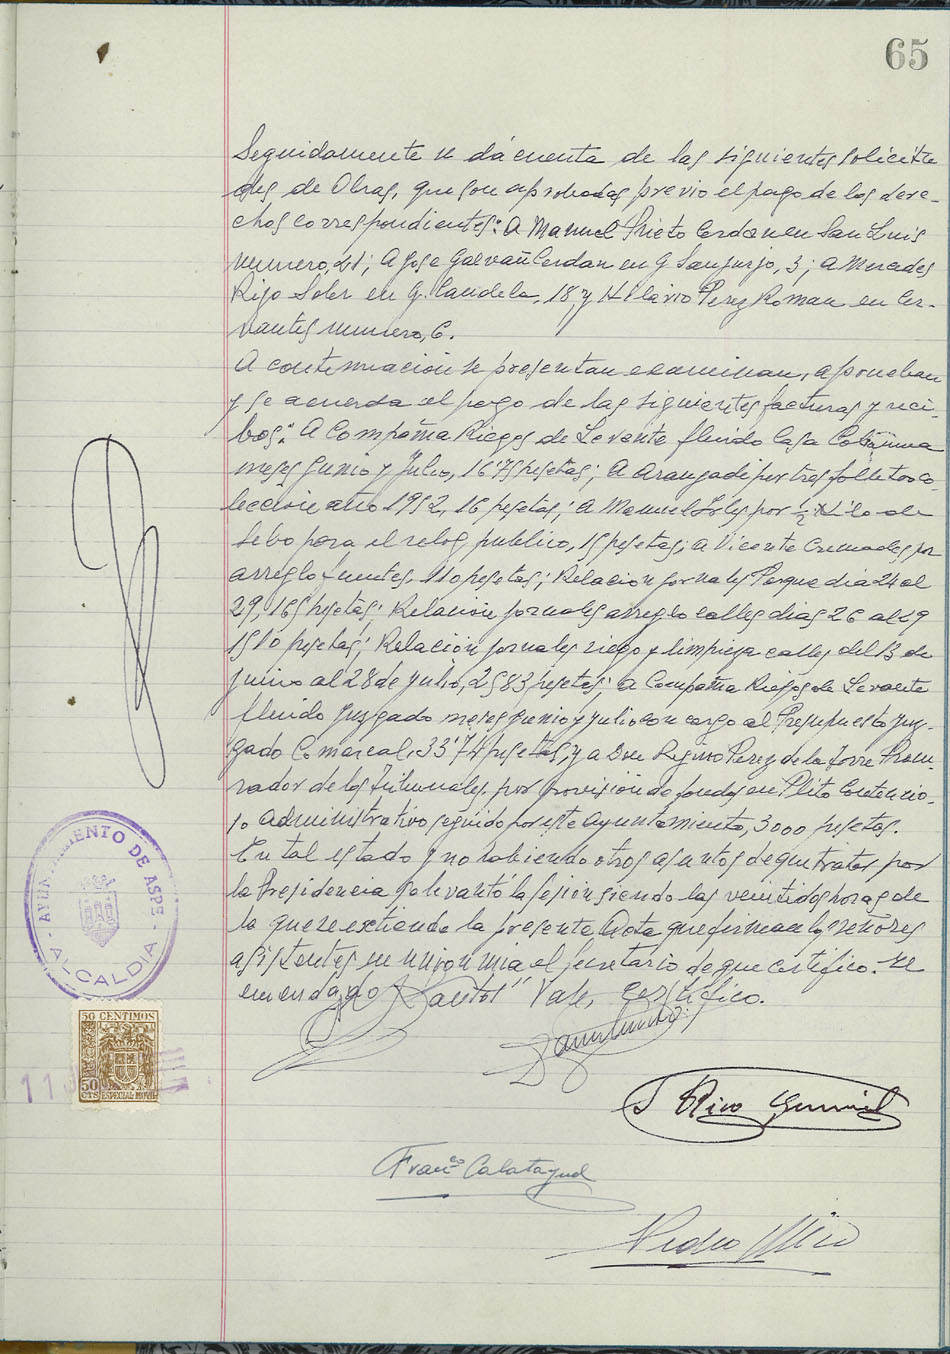 65
Seguidamente se dá cuenta de las siguientes solicitu
des de Obras, que son aprobadas previo el pago de los dere-
chos correspondientes: A Manuel Prieto Cerdan en San Luis
numero, 21; A Jose Galvañ Cerdan en G. Sanjurjo, 3; a Mercedes
Rizo Soler en G. Candela, 18, y Hilario Perez Roman en Cer-
vantes numero, 6.
A continuación se presentan examinan, aprueban
y se acuerda el pago de las siguientes facturas y reci-
bos: A Compañia Riegos de Levante fluido Casa
meses Junio y Julio, 16'75 pesetas; A Aranzadi por tres folletos co-
lección año 1952, 16 pesetas; a Manuel por ½ Kilo de
sebo para el reloj publico, 15 pesetas; a Vicente Cremades por
arreglo fuentes, 110 pesetas; Relacion jornales Parque dia 24 al
29, 165 pesetas; Relación jornales arreglo calles dias 26 al 29
pesetas; Relación jornales riego y limpieza calles del 13 de
junio al 28 de julio, 2583 pesetas; a Compañia Riegos de Levante
fluido Juzgado meses junio y julio con cargo al Presupuesto Juz-
gado Comarcal, 33'74 pesetas, y a Don Regino Perez de la Torre Procu-
rador de los Tribunales, por provisión de fondos en Plito Contencio-
so Administrativo seguido por este Ayuntamiento, 3000 pesetas.
En tal estado y no habiendo otros asuntos de que tratar por
la Presidencia se levantó la sesión siendo las veintidos horas de
la que se extiende la presente Acta que firman los señores
asistentes en union mia el secretario de que certifico. =El
enmendado Vale, certifico.
AYUNTAMIENTO DE ASPE
ALCALDIA
50 CENTIMOS
50 CTS
ESPECIAL MOVIL
11
Rico
Franco Calatayud
Pedro Mico